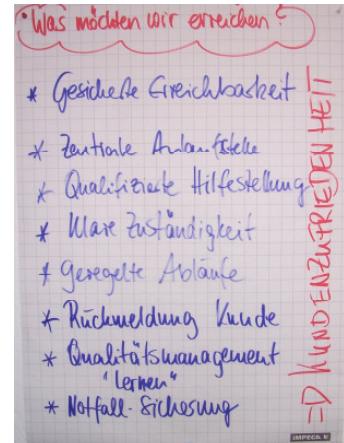 Was möchten wir erreichen?
* Gesicherte Erreichbarkeit
* Zentrale Anlaufstelle
* Qualifizierte Hilfestellung
* Klare Zuständigkeit
* Geregelte Abläufe
* Rückmeldung Kunde
* Qualitätsmanagement
"lernen"
* Notfall-Sicherung
=D KUNDENZUFRIEDENHEIT